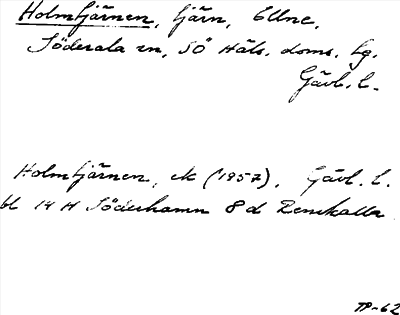 Holmtjärnen, tjärn, Ellne,
Söderala sn, SÖ Häls. doms. lg.
Gävl. l.
Holmtjärnen, ek (1957), Gävl. l.
bl 14 H Söderhamn 8 d Renskalla
TP-62